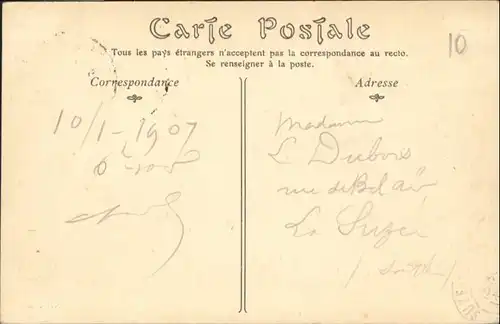 Carte Postale
10
Tous les pays étrangers n'acceptent pas la correspondance au recto.
Se renseigner à la poste.
Correspondance
Adresse
10/1-1907
Madame
L Dubois
rue de Bel air
La Suze